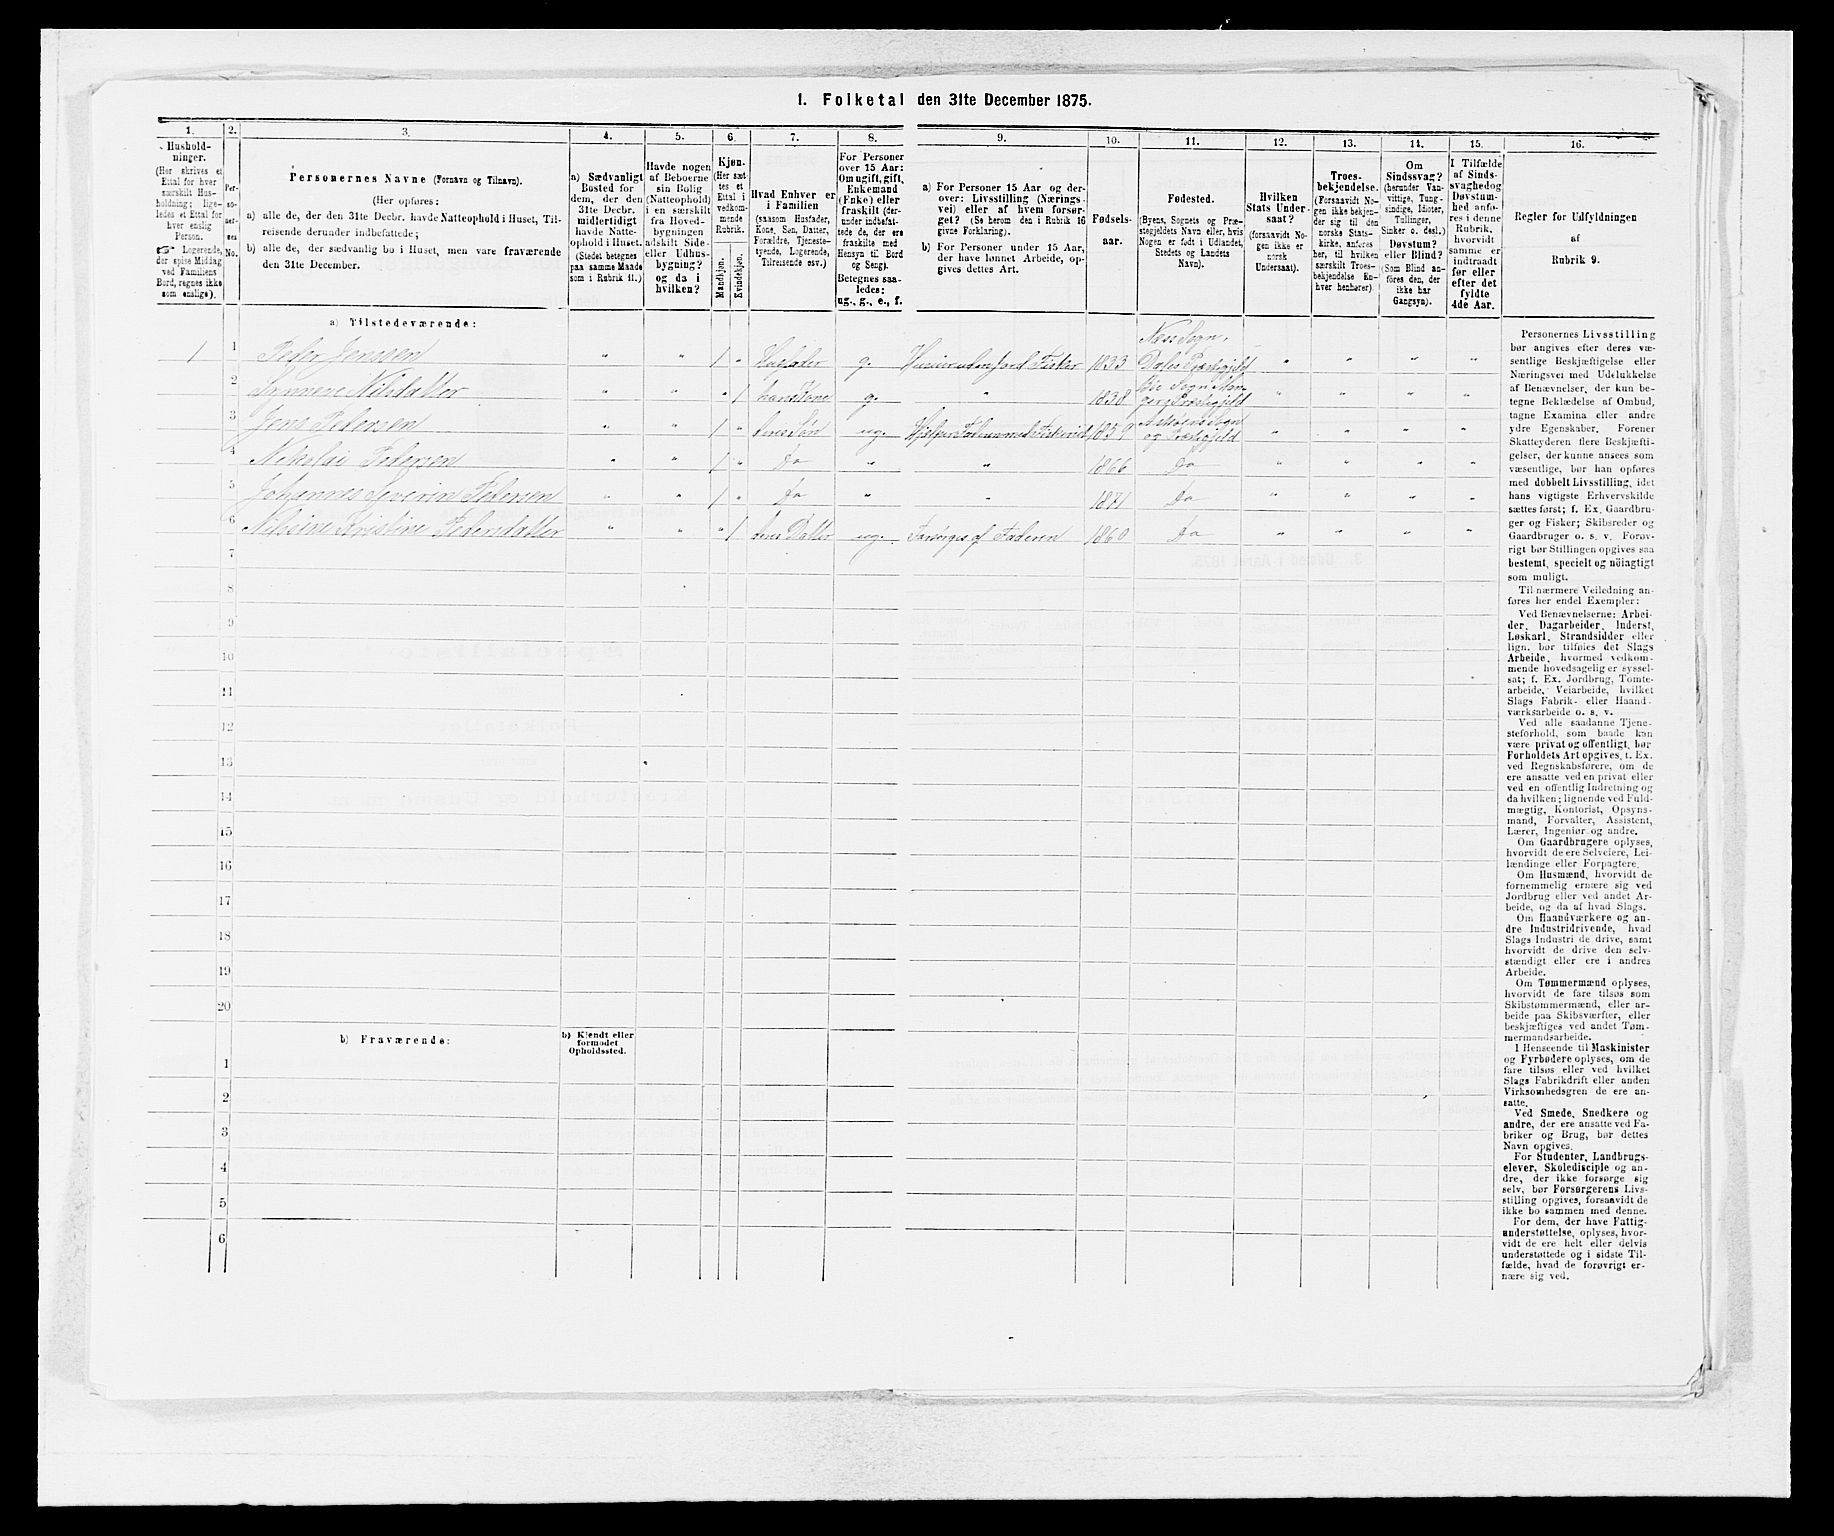 1. Folketal den 31te December 1875.
1.
Hushold-
ninger.
(Her skrives et
Ettal for hver
særskilt Hus-
holdning; lige-
ledes et Ettal for
hver enslig
Person.
Logerende,
der spise Middag
ved Familiens
Bord, regnes ikke
som enslige).
2.
Per-
so-
ner-
nes
No.
3.
Personernes Navne (Fornavn og Tilnavn).
(Her opføres:
a) alle de, der den 31te Decbr. havde Natteophold i Huset, Til-
reisende derunder indbefattede;
b) alle de, der sædvanlig bo i Huset, men vare fraværende
den 31te December.
4.
a) Sædvanligt
Bosted for
dem, der den
31te Decbr.
midlertidigt
havde Natte-
ophold i Huset.
(Stedet betegnes
paa samme Maade
som i Rubrik 11.)
5.
Havde nogen
af Beboerne
sin Bolig
(Natteophold)
i en særskilt
fra Hoved-
bygningen
adskilt Side-
eller Udhus-
bygning?
og da i
hvilken?
6.
Kjøn.
(Her sæt-
tes et
Ettal i
vedkom-
mende
Rubrik.
Mandkjøn.
Kvindekjøn.
7.
Hvad Enhver er
i Familien
(saasom Husfader,
Kone, Søn, Datter,
Forældre, Tjeneste-
tyende, Logerende,
Tilreisende osv.)
8.
For Personer
over 15 Aar:
Om ugift, gift,
Enkemand
(Enke) eller
fraskilt (der-
under indbefat-
tede de, der ere
fraskilte med
Hensyn til Bord
og Seng).
Betegnes saa-
ledes:
ug., g., e., f.
9.
a) For Personer 15 Aar og der-
over: Livsstilling (Nærings-
vei) eller af hvem forsør-
get? (Se herom den i Rubrik 16
givne Forklaring).
b) For Personer under 15 Aar,
der have lønnet Arbeide, op-
gives dettes Art.
10.
Fødsels-
aar.
11.
Fødested.
(Byens, Sognets og Præ-
stegjeldets Navn eller, hvis
Nogen er født i Udlandet,
Stedets og Landets
Navn).
12.
Hvilken
Stats Under-
saat?
(forsaavidt No-
gen ikke er
norsk
Undersaat).
13.
Troes-
bekjendelse.
(Forsaavidt No-
gen ikke bekjen-
der sig til den
norske Stats-
kirke, anføres
her, til hvilken
særskilt Troes-
bekjendelse En-
hver henhører).
14.
Om
Sindssvag?
(herunder Van-
vittige, Tung-
sindige, Idioter,
Tullinger,
Sinker o. desl.)
Døvstum?
eller Blind?
(Som Blind an-
føres den, der
ikke har
Gangsyn).
15.
I Tilfælde
af Sinds-
svaghed og
Døvstum-
hed anfø-
res i denne
Rubrik,
hvorvidt
samme er
indtraadt
før eller
efter det
fyldte
4de Aar.
16.
Regler for Udfyldningen
af
Rubrik 9.
a) Tilstedeværende:
1 1 Peder Jenssen " " 1 " Husfader g. Fisker 1833 Næs Sogn, Dales Præstegjeld " " " "
2 Synneve Nilsdatter " " " 1 hans Kone g. " 1838 " " " "
3 Jens Pedersen " " 1 " deres Søn ug. Hjelper Faderen med Fiskeriet 1859 Askøens Sogn og Præstegjeld " " " "
4 Nikolai Pedersen " " 1 " Do " " 1866 Do " " " "
5 Johannes Severin Pedersen " " 1 " Do " " 1871 Do " " " "
6 Nilsine Kristine Pedersdatter " " " 1 deres Datter ug. Forsørges af Faderen 1860 Do " " " "
7
8
9
10
11
12
13
14
15
16
17
18
19
20
b) Fraværende:
b) Kjendt eller
formodet
Opholdssted.
1
2
3
4
5
6
Personernes Livsstilling
bør angives efter deres væ-
sentlige Beskjæftigelse eller
Næringsvei med Udelukkelse
af Benævnelser, der kun be-
tegne Beklædelse af Ombud,
tagne Examina eller andre
ydre Egenskaber. Forener
Skatteyderen flere Beskjæfti-
gelser, der kunne ansees som
væsentlige, bør han opføres
med dobbelt Livsstilling, idet
hans vigtigste Erhvervskilde
sættes først; f. Ex. Gaardbru-
ger og Fisker; Skibsreder og
Gaardbruger o. s. v. Forøv-
rigt bør Stillingen opgives saa
bestemt, specielt og nöiagtigt
som muligt.
Til nærmere Veiledning an-
føres her endel Exempler:
Ved Benævnelserne: Arbei-
der, Dagarbeider, Inderst,
Løskarl, Strandsidder eller
lign. bør tilføies det Slags
Arbeide, hvormed vedkom-
mende hovedsagelig er syssel-
sat; f. Ex. Jordbrug, Tomte-
arbeide, Veiarbeide, hvilket
Slags Fabrik- eller Haand-
værksarbeide o. s. v.
Ved alle saadanne Tjene-
steforhold, som baade kan
være privat og offentligt, bør
Forholdets Art opgives, t. Ex.
ved Regnskabsførere, om de
ere ansatte ved en privat eller
ved en offentlig Indretning og
da hvilken; lignende ved Fuld-
mægtig, Kontorist, Opsyns-
mand, Forvalter, Assistent,
Lærer, Ingeniør og andre.
Om Gaardbrugere oplyses,
hvorvidt de ere Selveiere, Lei-
lændinge eller Forpagtere.
Om Husmænd, hvorvidt de
fornemmelig ernære sig ved
Jordbrug eller ved andet Ar-
beide, og da af hvad Slags.
Om Haandværkere og an-
dre Industridrivende, hvad
Slags Industri de drive, samt
hvorvidt de drive den selv-
stændigt eller ere i andres
Arbeide.
Om Tømmermænd oplyses,
hvorvidt de fare tilsøs som
Skibstømmermænd, eller ar-
beide paa Skibsværfter, eller
beskjæftiges ved andet Tøm-
mermandsarbeide.
I Henseende til Maskinister
og Fyrbødere oplyses, om de
fare tilsøs eller ved hvilket
Slags Fabrikdrift eller anden
Virksomhedsgren de ere an-
satte.
Ved Smede, Snedkere og
andre, der ere ansatte ved Fa-
briker og Brug, bør dettes
Navn opgives.
For Studenter, Landbrugs-
elever, Skoledisciple og an-
dre, der ikke forsørge sig
selv, bør Forsørgerens Livs-
stilling opgives, forsaavidt de
ikke bo sammen med denne.
For dem, der have Fattig-
understøttelse, oplyses, hvor-
vidt de ere helt eller delvis
understøttede og i sidste Til-
fælde, hvad de forøvrigt er-
nære sig ved.